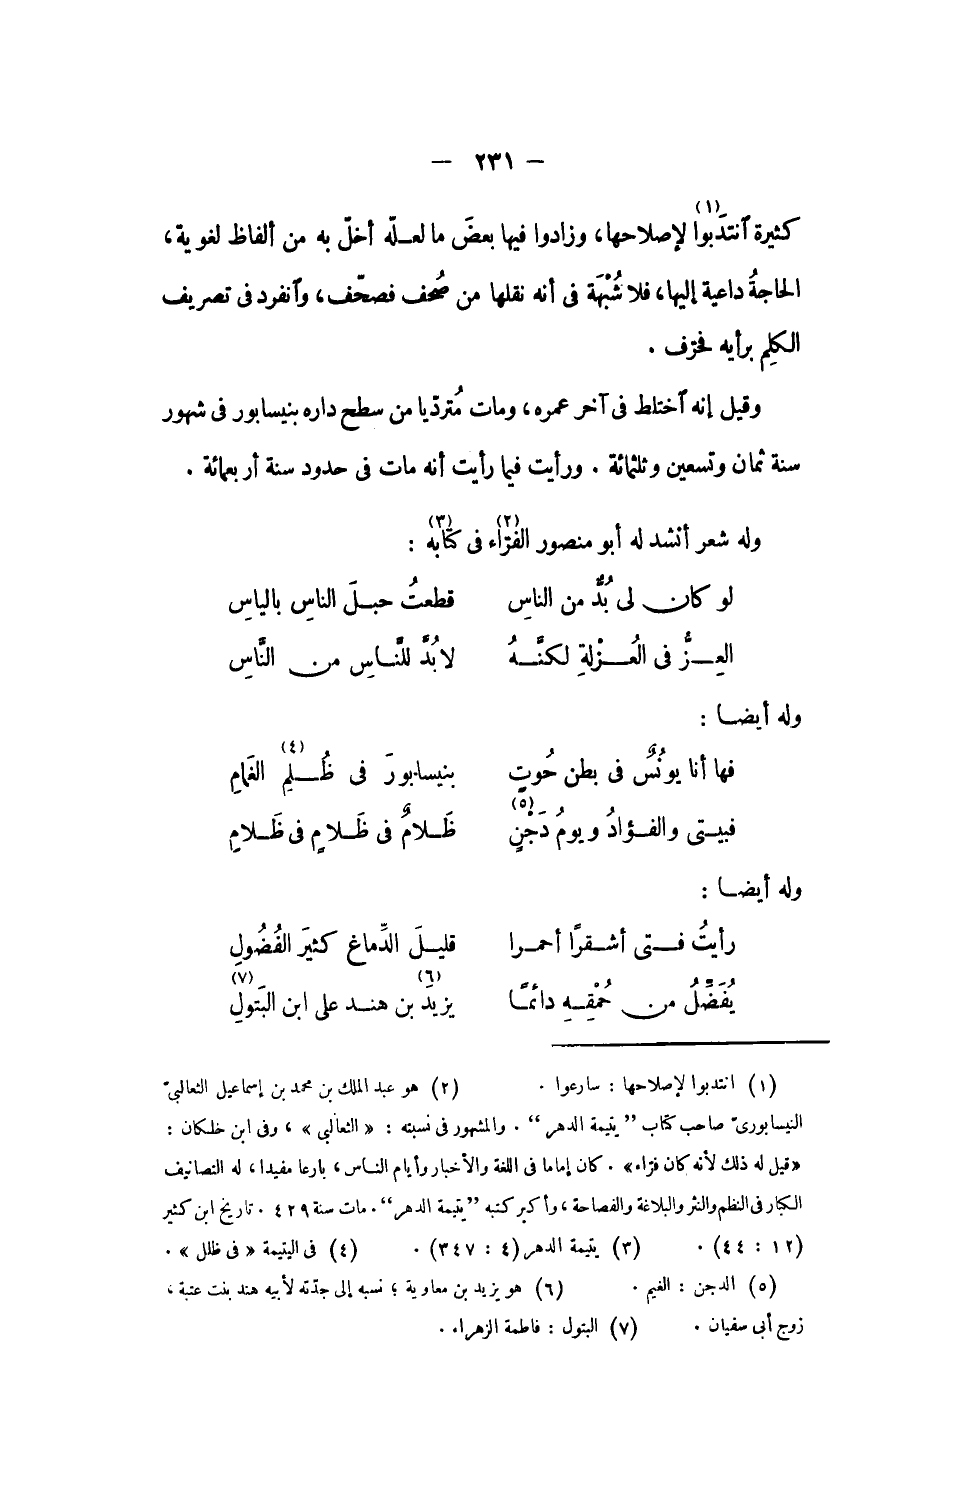 — ٢٣١ —
كثيرة ٱنتدَبوا(١) لإصلاحها، وزادوا فيها بعضَ ما لعله أخلّ به من ألفاظ لغوية،
الحاجةُ داعية إليها، فلا شُبْهَة فى أنه نقلها من صُحف فصحّف، وٱنفرد فى تصريف
الكلِم برأيه فحرّف .
وقيل إنه ٱختلط فى آخر عمره، ومات مُتردّيا من سطح داره بنيسابور فى شهور
سنة ثمان وتسعين وثلثمائة . ورأيت فيما رأيت أنه مات فى حدود سنة أربعمائة .
وله شعر أنشد له أبو منصور الفرّاء(٢) فى كتابه(٣) :
لو كان لى بُدٌّ من الناسِ قطعتُ حبلَ الناسِ بالياسِ
العِزُّ فى العُزْلةِ لكنَّهُ لا بُدَّ للنَّاسِ من النَّاسِ
وله أيضا :
فها أنا يونُسٌ فى بطن حُوتٍ بنيسابورَ فى ظُلَمِ(٤) الغَمامِ
فبيتى والفؤادُ ويومُ دَجْنٍ(٥) ظَلامٌ فى ظَلامٍ فى ظَلامِ
وله أيضا :
رأيتُ فتى أشقرًا أحمرا قليلَ الدِّماغِ كثيرَ الفُضُولِ
يُفَضِّلُ من حُمْقِهِ دائمًا يزيدَ(٦) بن هند على ابن البَتولِ(٧)
(١) انتدبوا لإصلاحها : سارعوا . (٢) هو عبد الملك بن محمد بن إسماعيل الثعالبىّ
النيسابورىّ صاحب كتاب ”يتيمة الدهر“ . والمشهور فى نسبته : «الثعالبى»، وفى ابن خلكان :
«قيل له ذلك لأنه كان فرّاء» . كان إماما فى اللغة والأخبار وأيام الناس، بارعا مفيدا، له التصانيف
الكبار فى النظم والنثر والبلاغة والفصاحة، وأكبر كتبه ”يتيمة الدهر“ . مات سنة ٤٢٩ . تاريخ ابن كثير
(١٢ : ٤٤) . (٣) يتيمة الدهر (٤ : ٣٤٧) . (٤) فى اليتيمة «فى ظلل» .
(٥) الدجن : الغيم . (٦) هو يزيد بن معاوية؛ نسبه إلى جدّته لأبيه هند بنت عتبة،
زوج أبى سفيان . (٧) البتول : فاطمة الزهراء .